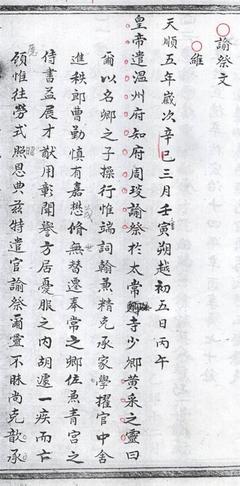 諭祭文
維
天順五年歲次辛巳三月壬寅朔越初五日丙午
皇帝遣溫州府知府周琰諭祭於太常寺少卿黃采之靈曰
爾以名卿之子操行惟端詞翰兼精克承家學擢官中舍
進秩郎曹勤慎有嘉懋脩無替遷奉常之卿佐兼青宮之
侍書益展才猷用彰聞譽方居憂服之內胡遽一疾而亡
顧惟往勞式照恩典茲特遣官諭祭爾靈不昧尚克歆承